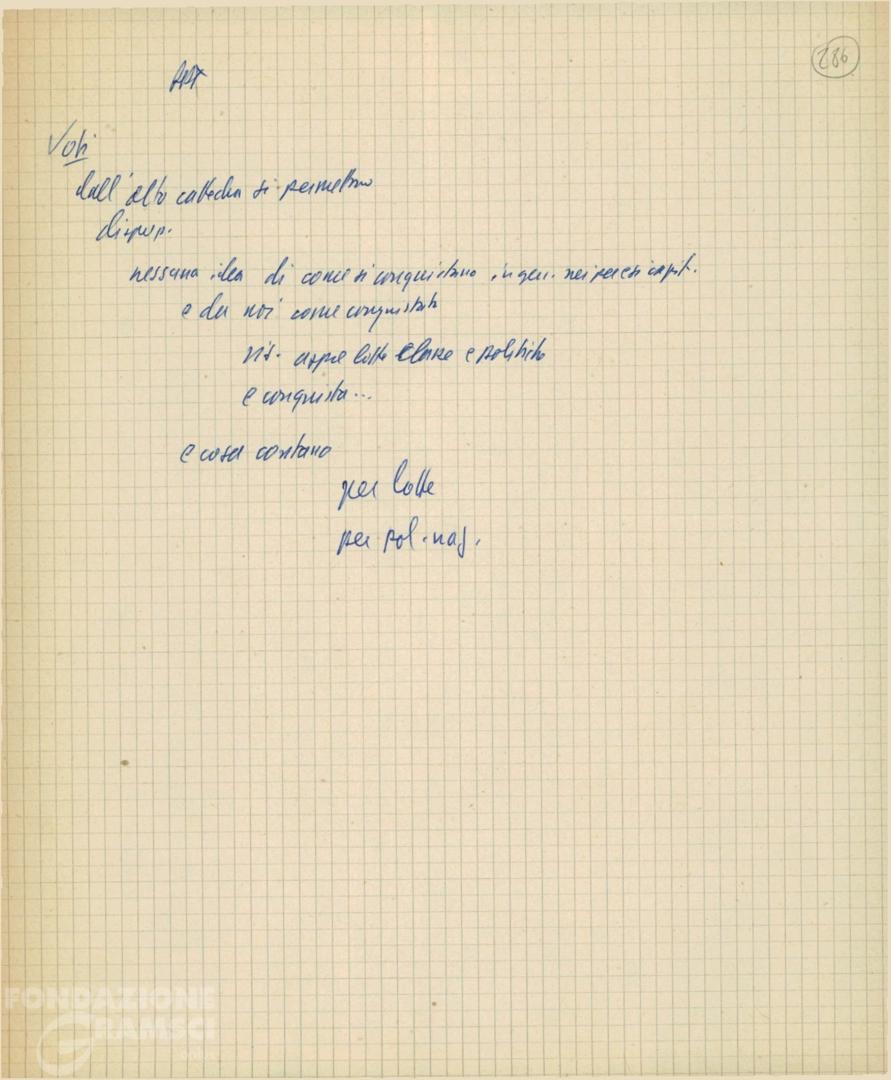 286
Voti
dall'alto cattedra si permettono
disprez.
nessuna idea di come si conquistano in gen. nei paesi capit.
e da noi come conquistati
ns. aspre lotte classe e politiche
e conquista...
e cosa contano
per lotte
per pol. naz.
FONDAZIONE
GRAMSCI